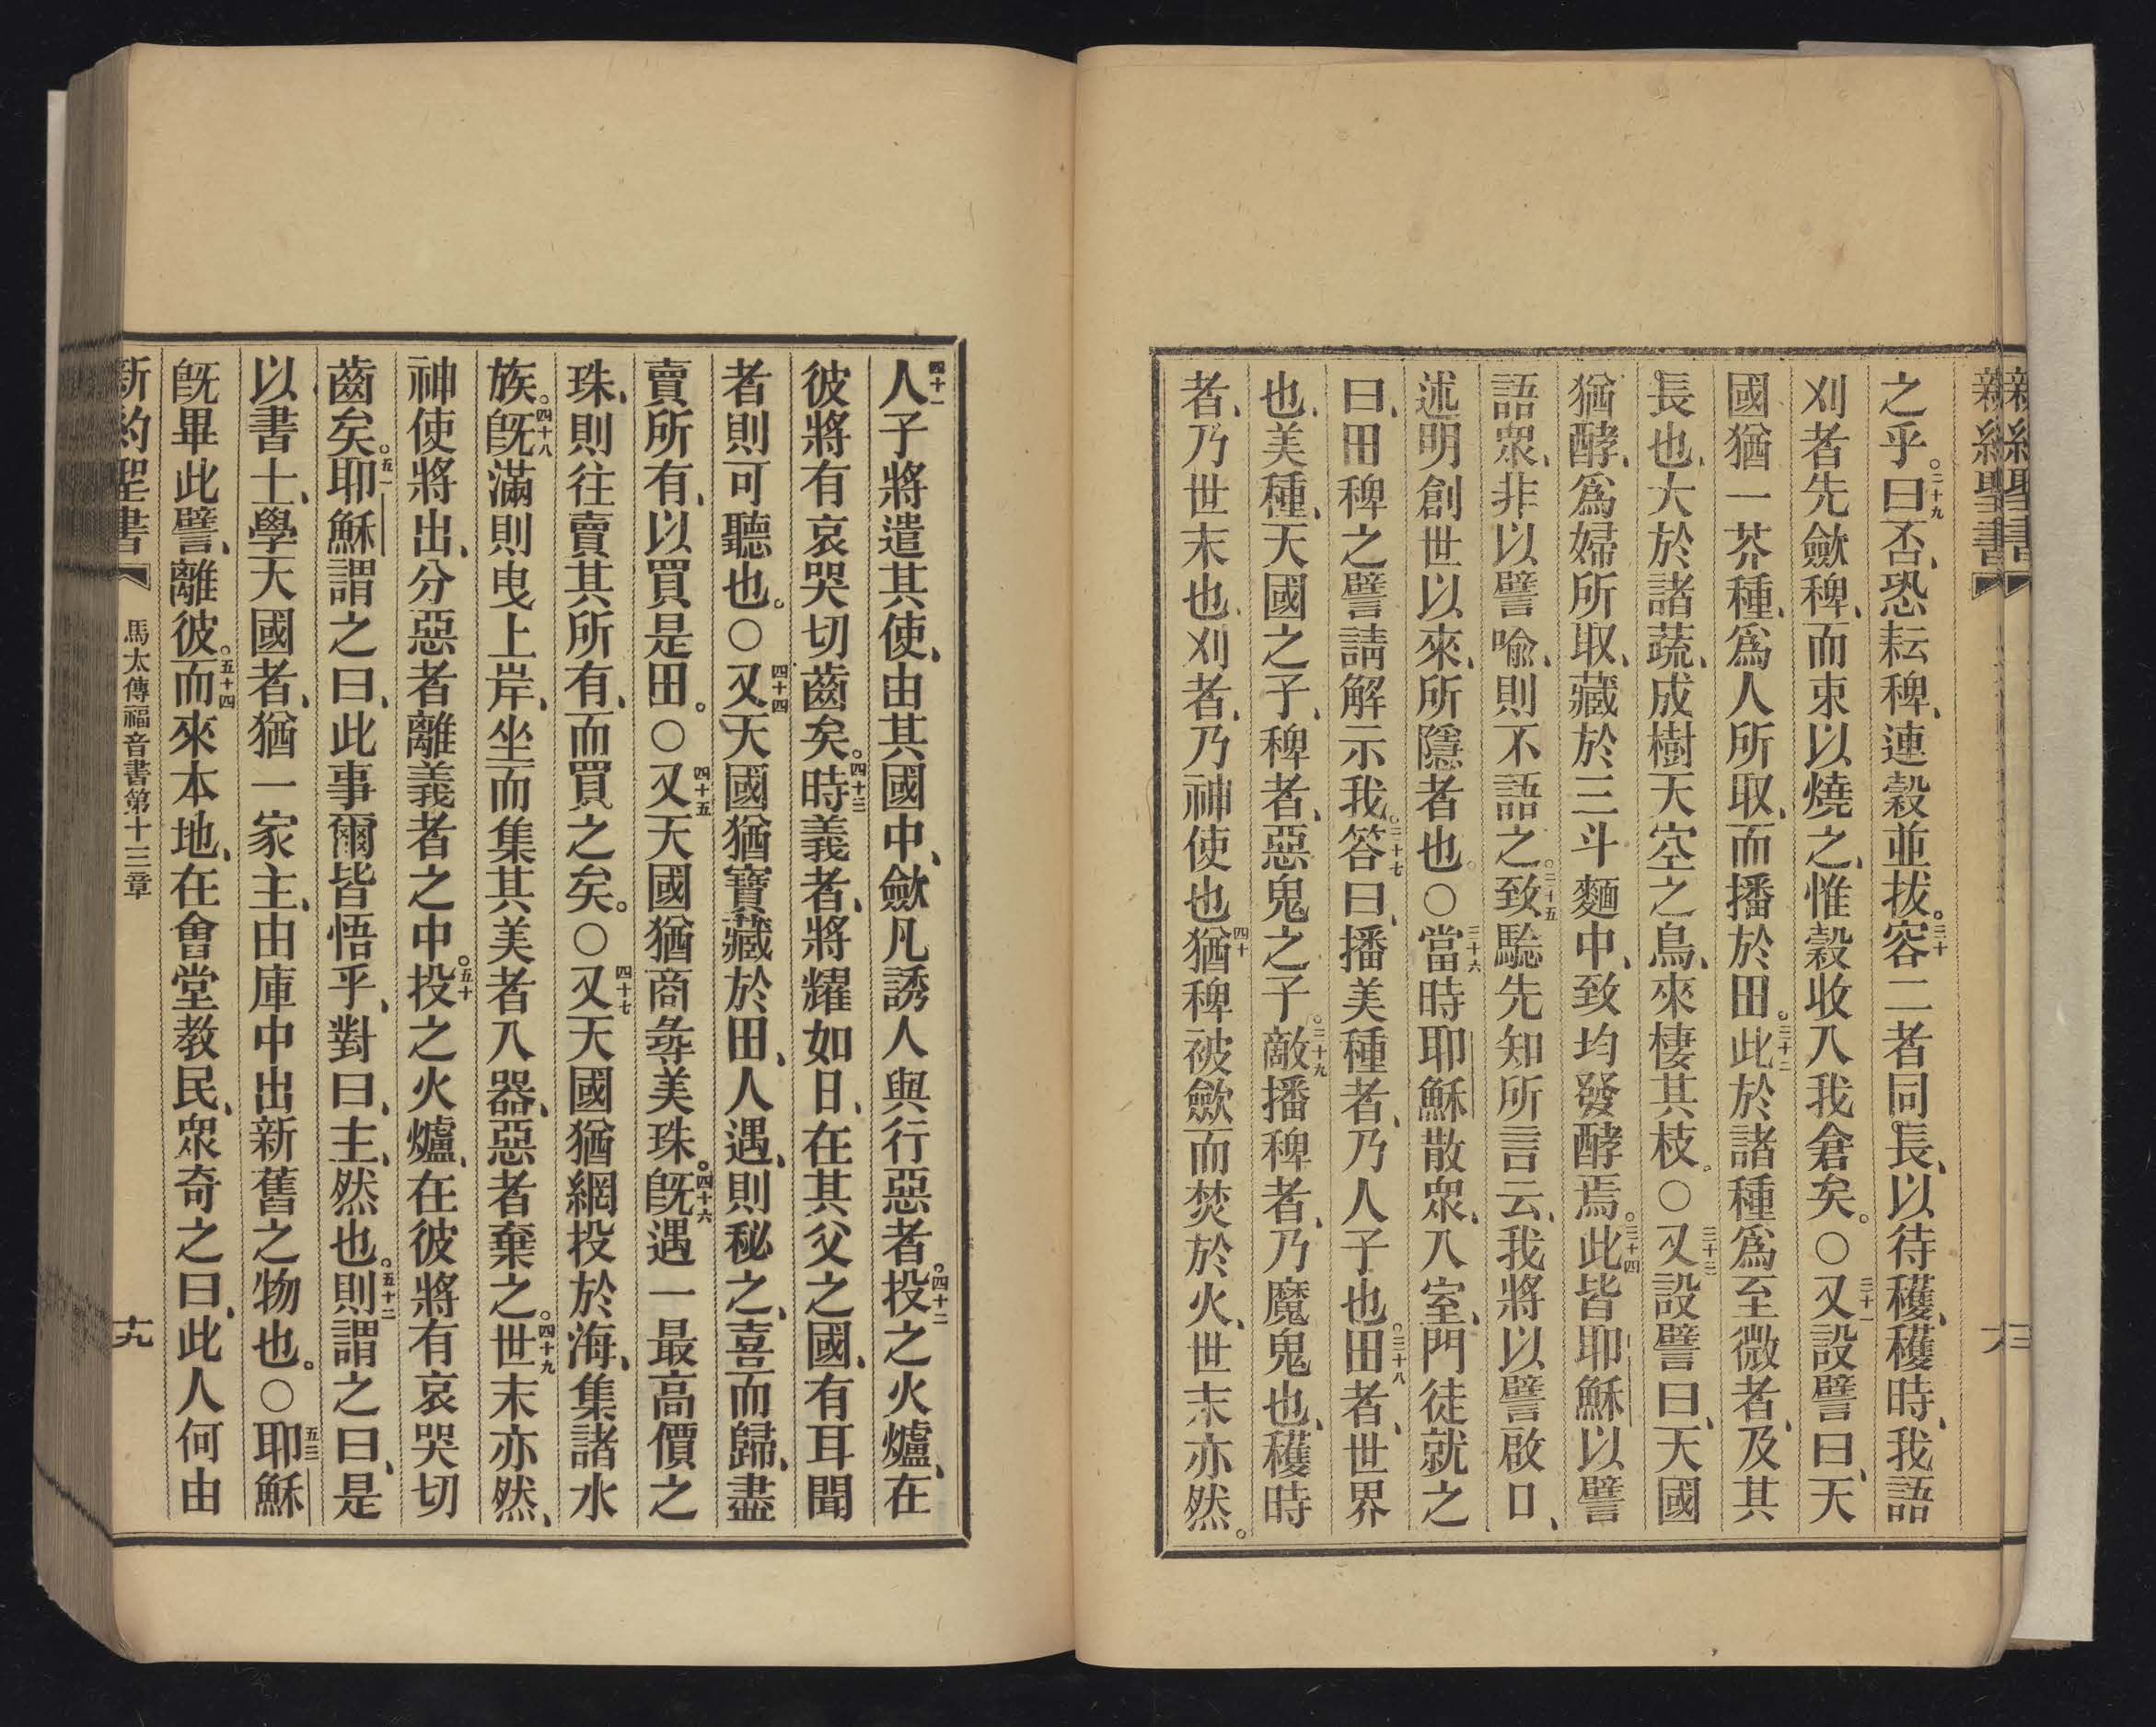 新約聖書
之乎。二十九曰否、恐耘稗、連穀並拔。三十容二者同長、以待穫、穫時、我語
刈者先歛稗、而束以燒之、惟穀收入我倉矣。〇三十一又設譬曰、天
國猶一芥種、爲人所取、而播於田。三十二此於諸種爲至微者、及其
長也、大於諸蔬、成樹天空之鳥、來棲其枝。〇三十三又設譬曰、天國
猶酵、爲婦所取、藏於三斗麵中、致均發酵焉。三十四此皆耶穌以譬
語衆、非以譬喩、則不語之。三十五致騐先知所言云、我將以譬啟口、
述明創世以來、所隱者也。〇三十六當時耶穌散衆、入室、門徒就之
曰、田稗之譬請解示我。三十七答曰、播美種者、乃人子也。三十八田者、世界
也、美種、天國之子、稗者、惡鬼之子。三十九敵播稗者、乃魔鬼也、穫時
者、乃世末也、刈者、乃神使也四十猶稗被歛而焚於火、世末亦然。
四十一人子將遣其使、由其國中、歛凡誘人與行惡者。四十二投之火爐、在
彼將有哀哭切齒矣。四十三時義者、將耀如日、在其父之國、有耳聞
者則可聽也。〇四十四又天國猶寶藏於田、人遇、則秘之、喜而歸、盡
賣所有、以買是田。〇四十五又天國猶商尋美珠。四十六旣遇一最高價之
珠、則往賣其所有、而買之矣。〇四十七又天國猶網投於海、集諸水
族。四十八旣滿則曳上岸、坐而集其美者入器、惡者棄之。四十九世末亦然、
神使將出、分惡者離義者之中。五十投之火爐、在彼將有哀哭切
齒矣。五一耶穌謂之曰、此事爾皆悟乎、對曰、主、然也。五十二則謂之曰、是
以書士、學天國者、猶一家主、由庫中出新舊之物也。〇五三耶穌
旣畢此譬、離彼。五十四而來本地、在會堂教民、衆奇之曰、此人何由
新約聖書 馬太傳福音書第十三章 十九